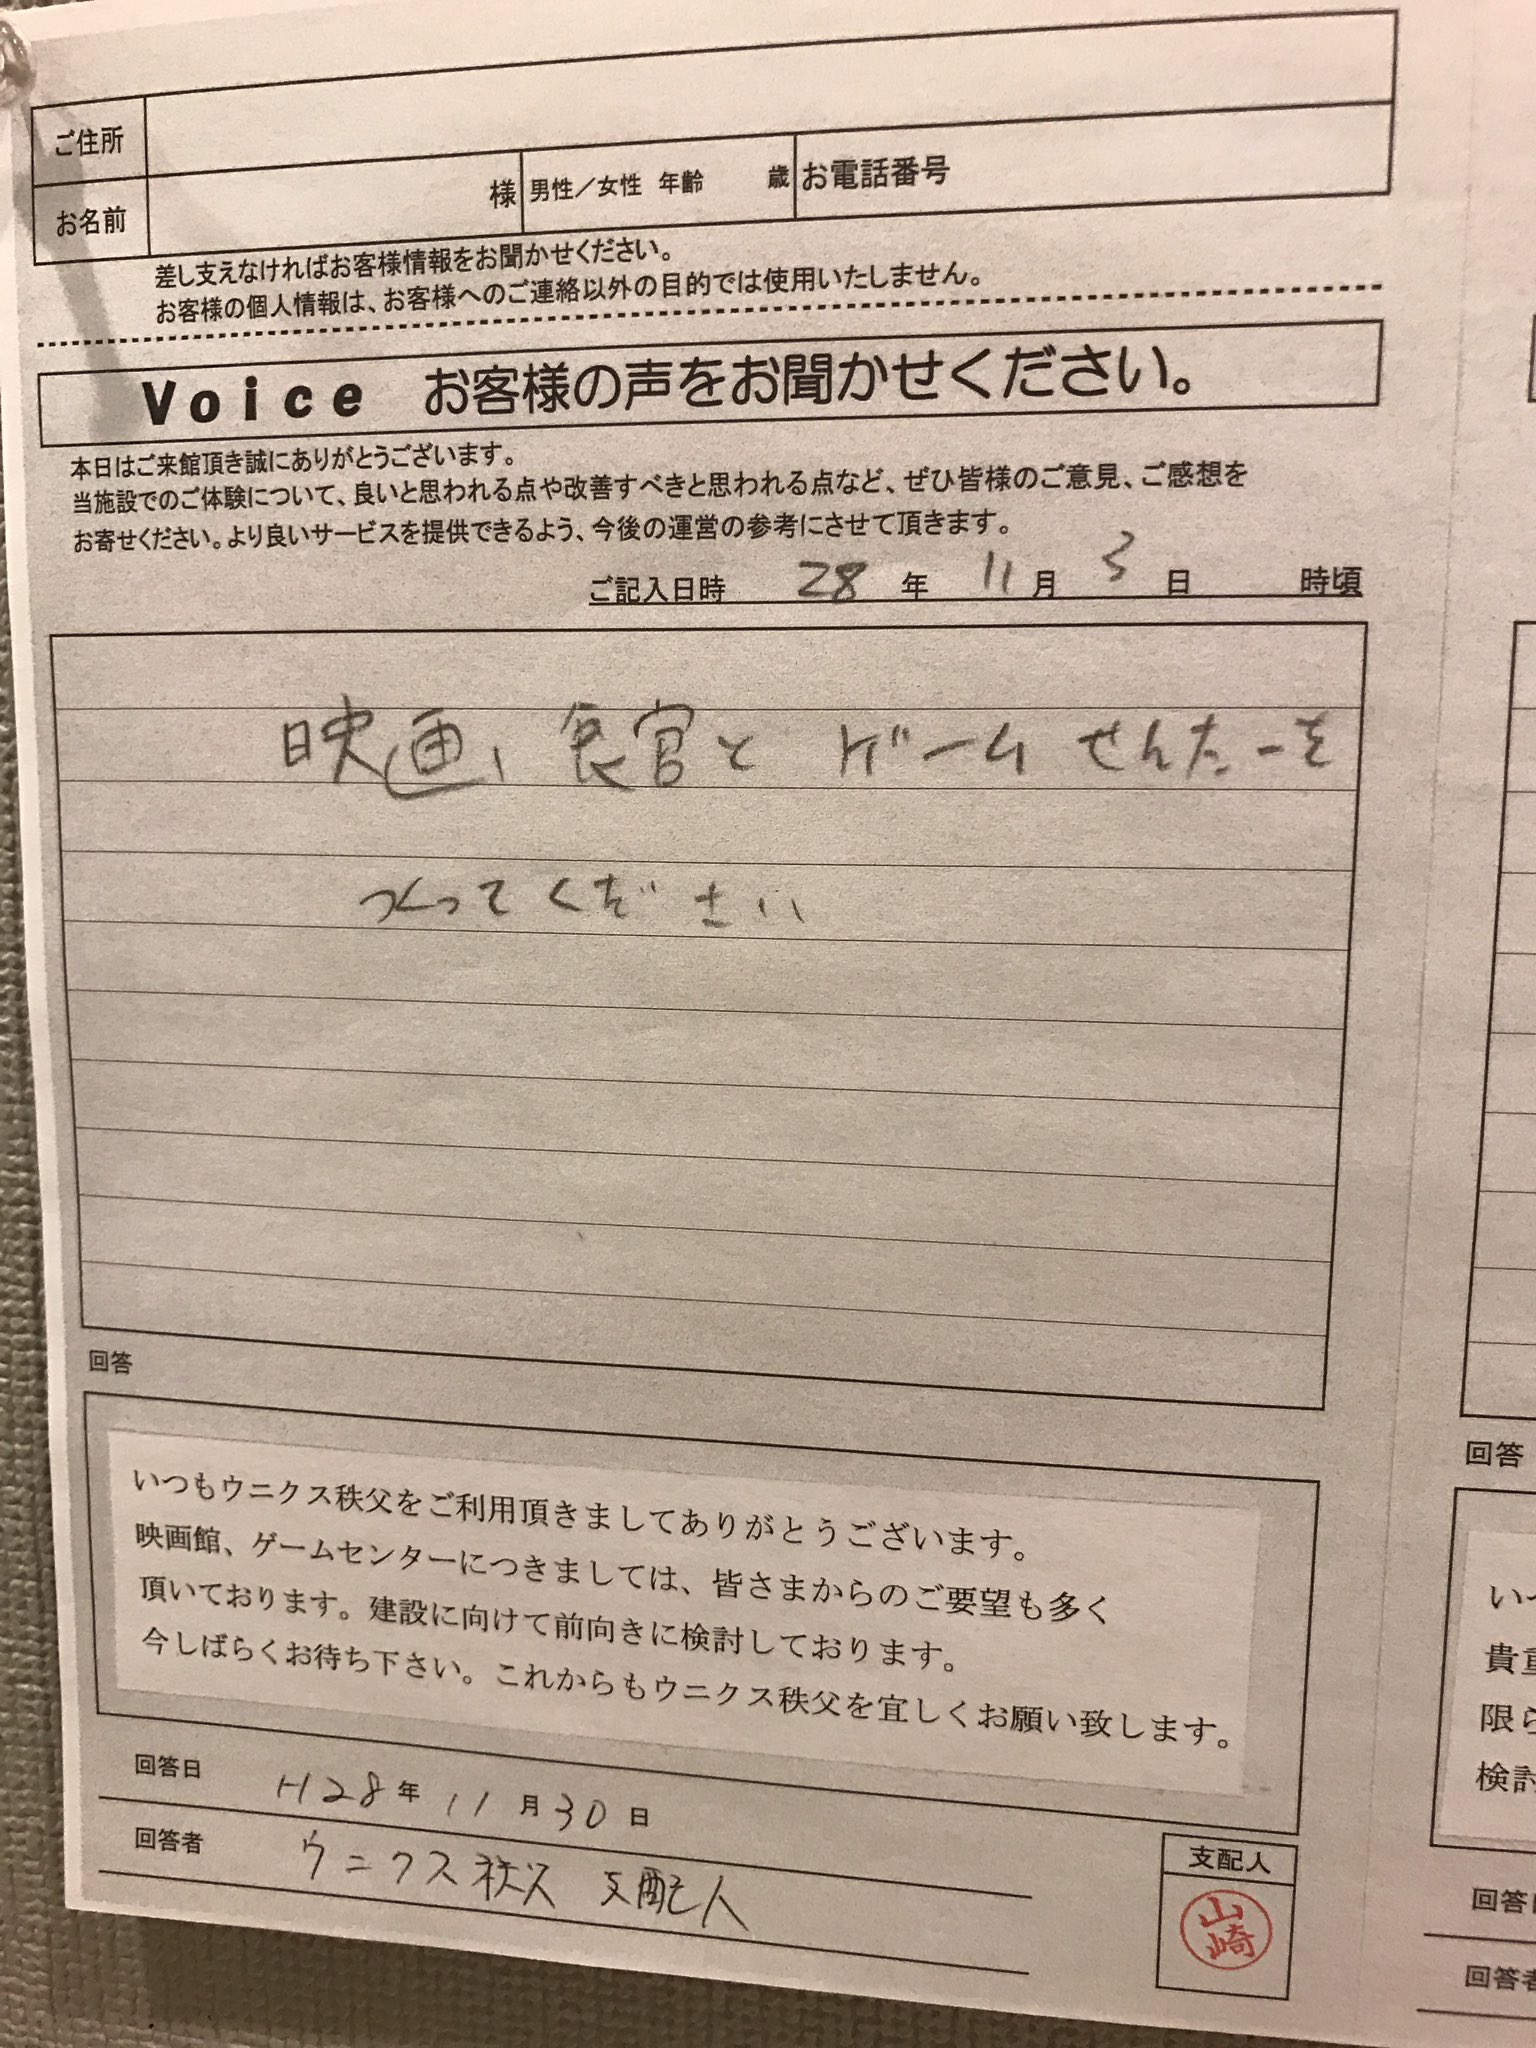 ご住所
お名前 様 男性／女性 年齢 歳 お電話番号
差し支えなければお客様情報をお聞かせください。
お客様の個人情報は、お客様へのご連絡以外の目的では使用いたしません。
Voice お客様の声をお聞かせください。
本日はご来館頂き誠にありがとうございます。
当施設でのご体験について、良いと思われる点や改善すべきと思われる点など、ぜひ皆様のご意見、ご感想を
お寄せください。より良いサービスを提供できるよう、今後の運営の参考にさせて頂きます。
ご記入日時 28 年 11 月 3 日 時頃
映画、食官と ゲーム せんたーを
つくってください
回答
いつもウニクス秩父をご利用頂きましてありがとうございます。
映画館、ゲームセンターにつきましては、皆さまからのご要望も多く
頂いております。建設に向けて前向きに検討しております。
今しばらくお待ち下さい。これからもウニクス秩父を宜しくお願い致します。
回答日 H28年 11 月 30 日
回答者 ウニクス秩父 支配人
支配人
山崎
回答
貴重
検討